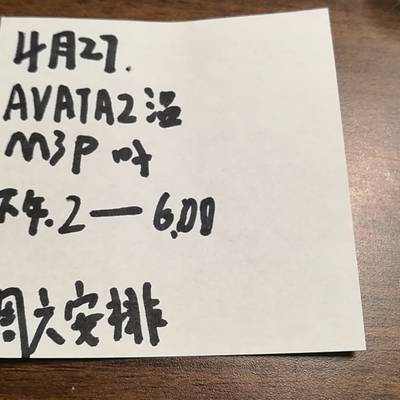 4月27.
AVATA2
M3P 叶
下午.2—6.00
周六安排